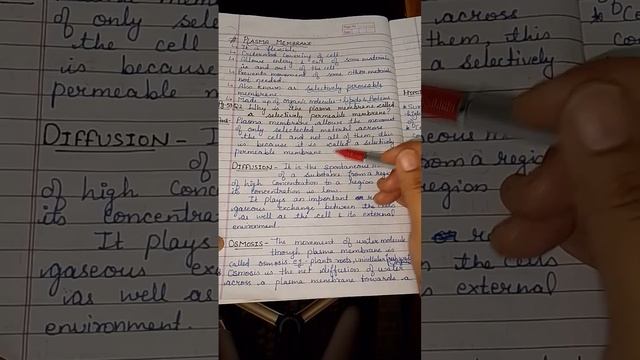 # PLASMA MEMBRANE
It is flexible
Outermost covering of cell
Allows entry & exit of some materials
in and out of the cell
Prevents movement of some other material
not needed.
Also known as selectively permeable
membrane
Made up of organic molecule - lipids & proteins
Why is the plasma membrane called
a selectively permeable membrane?
Plasma membrane allows the movement
of only selected material across
the cell and not all of them, this
is because it is called a selectively
permeable membrane
DIFFUSION - It is the spontaneous
of a substance from a region
of high concentration to a region
its concentration is low.
It plays an important
gaseous exchange between the cells
as well as the cell & its external
environment.
OSMOSIS - The movement of water molecule
through plasma membrane is
called osmosis eg - plants roots, unicellular
Osmosis is the net diffusion of water
across a plasma membrane towards a
of only sele
the cell
is becau
permeable m
DIFFUSION - I
of
of high Conc
its concentra
It plays
gaseous ex
as well as
environment.
across
them, this
a selectively
from a region
region
the cells
external